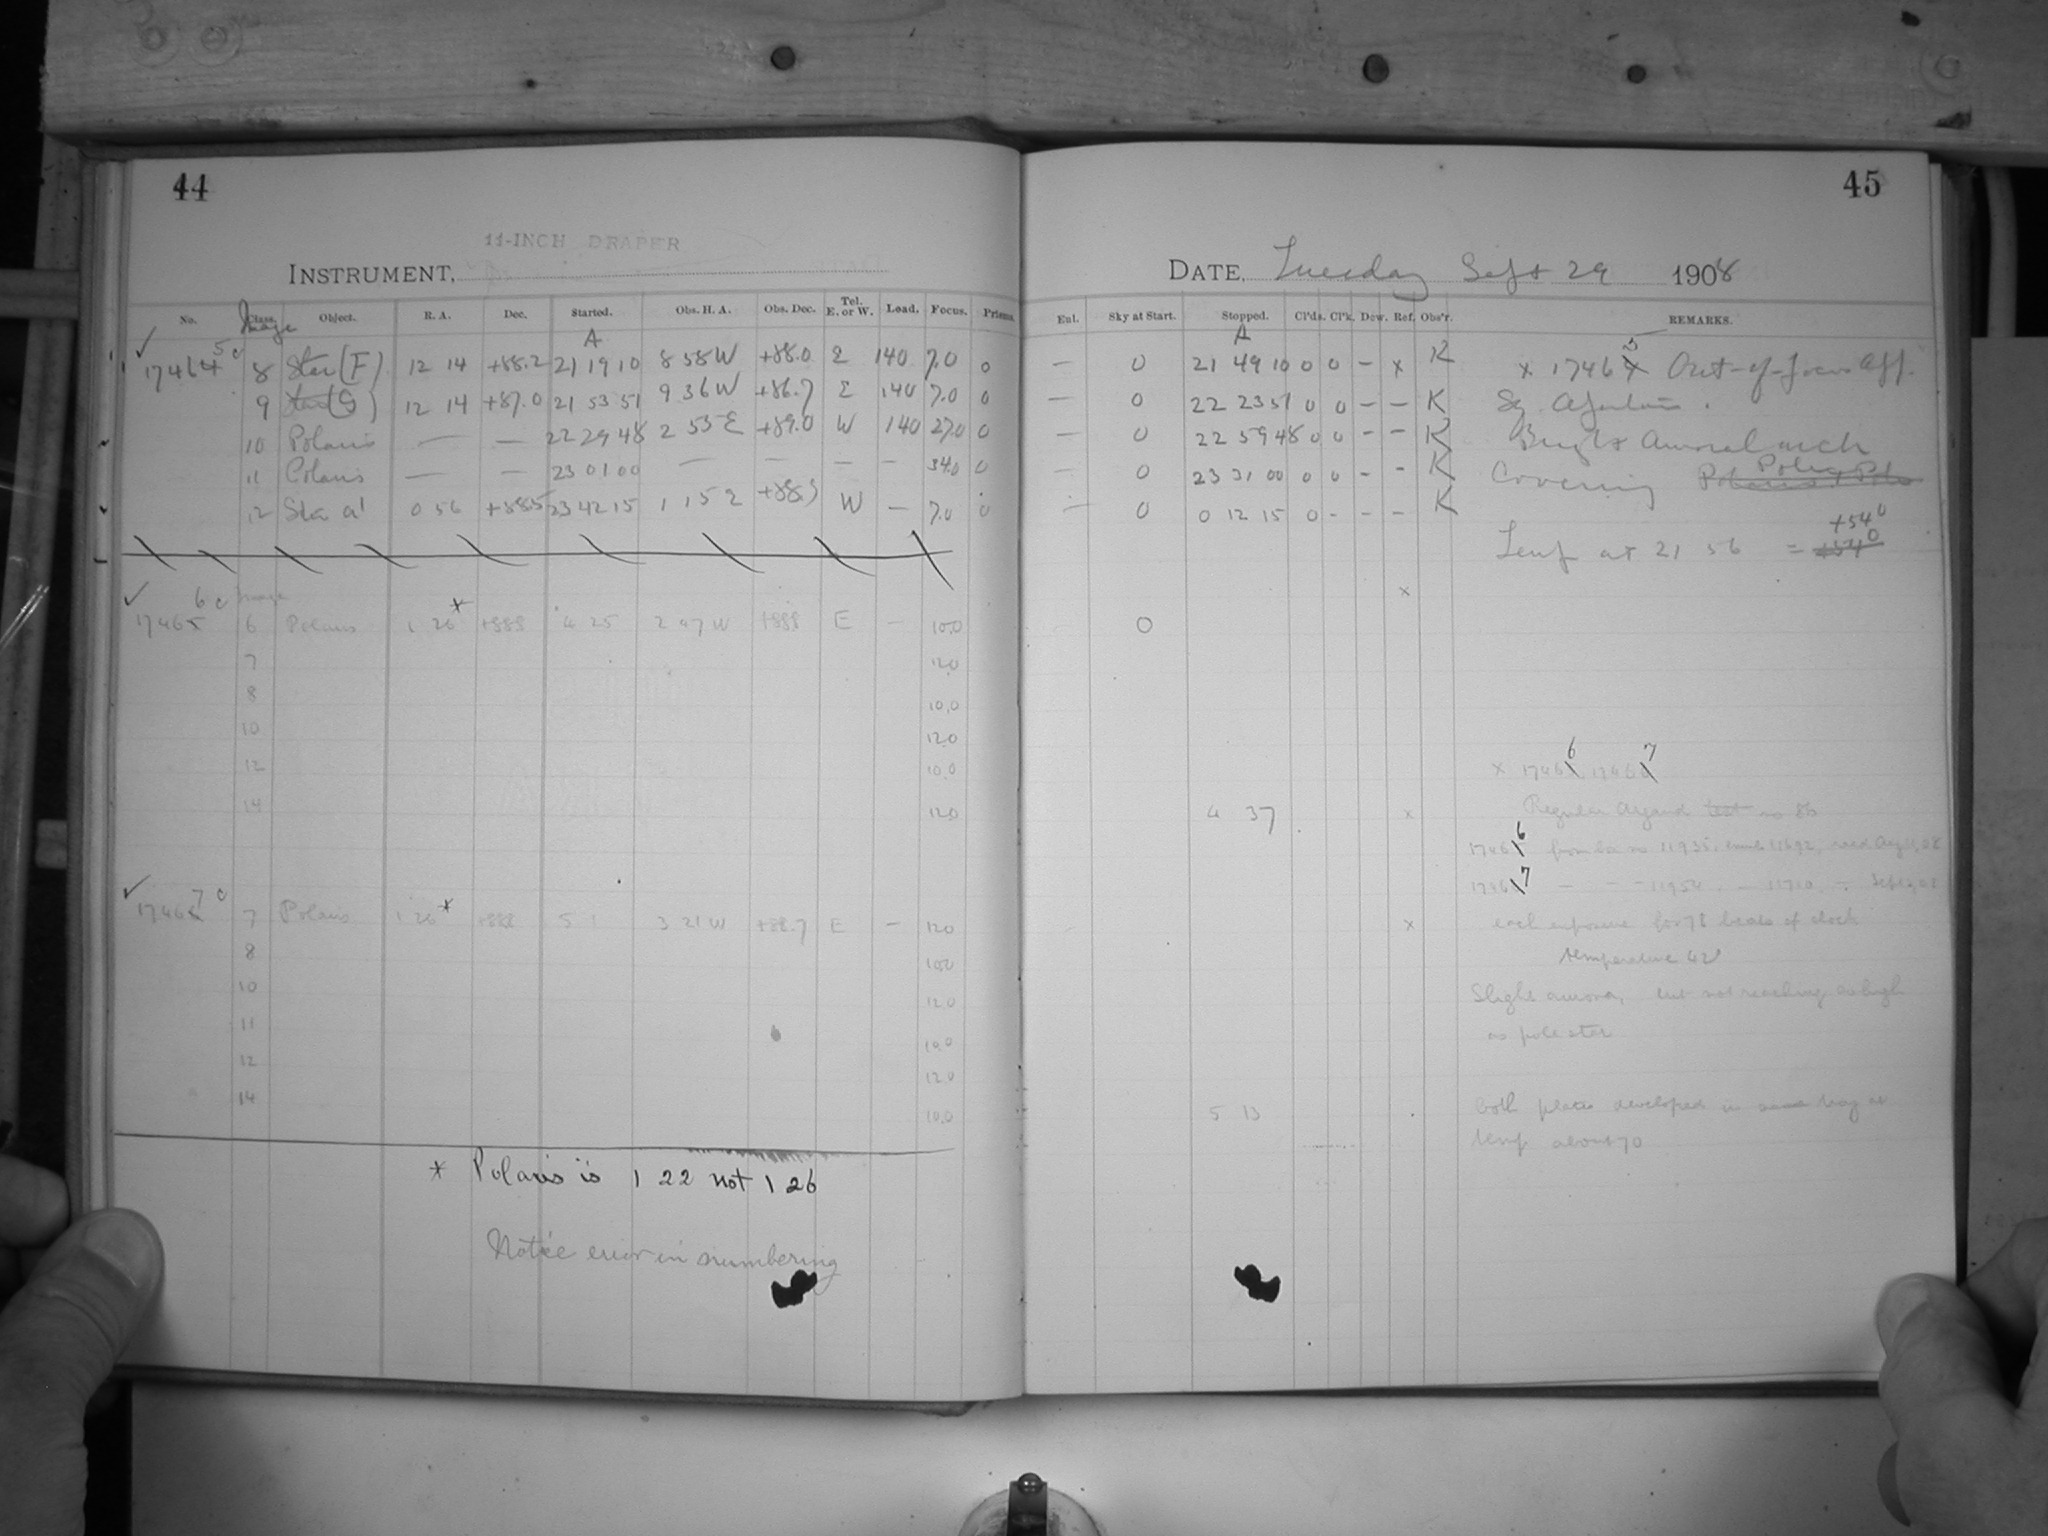 44
11-INCH DRAPER
INSTRUMENT,
No. Class. Image Object. R. A. Dec. Started. Obs. H. A. Obs. Dec. Tel. E. or W. Load. Focus. Prisms.
A
17464 5 c 8 Star (F) 12 14 +88.2 21 19 10 8 58 W +88.0 E 140 7.0 0
9 Star (G) 12 14 +87.0 21 53 51 9 36 W +86.7 E 140 7.0 0
10 Polaris — — 22 29 48 2 53 E +89.0 W 140 27.0 0
11 Polaris — — 23 01 00 — — — — 34.0 0
12 Star a' 0 56 +88.5 23 42 15 1 15 W — 7.0 0
6 c Image
17465 6 Polaris 1 26* +88.8 4 25 2 47 W +88.8 E — 10.0
7 12.0
8 10.0
10 12.0
12 10.0
14 12.0
7 c
1746 7 Polaris 1 26* +88.8 5 1 3 21 W +88.7 E — 12.0
8 10.0
10 12.0
11 10.0
12 12.0
14 10.0
* Polaris is 1 22 not 1 26
Notice error in numbering
45
DATE, Tuesday Sept 29 1908
Eul. Sky at Start. Stopped. Cl'ds. Cl'k. Dew. Ref. Obs'r. REMARKS.
A
— 0 21 49 10 0 0 — x K x 1746 5 Out-of-focus
— 0 22 23 51 0 0 — — K Sq.
— 0 22 59 48 0 0 — — K Bright Auroral arch
— 0 23 31 00 0 0 — — K Covering Polaris
— 0 0 12 15 0 - - - K
Temp at 21 56 = +54° +54°
x
0
x 1746 6 1746 7
4 37 x Regular Argand test no 86
1746 6 from box no 11935
1746 7 — — — 11954
x each exposure for 78 beats of clock
temperature 42°
Slight aurora, but not reaching as high
as pole star
5 13 both plates developed in same tray at
temp about 70